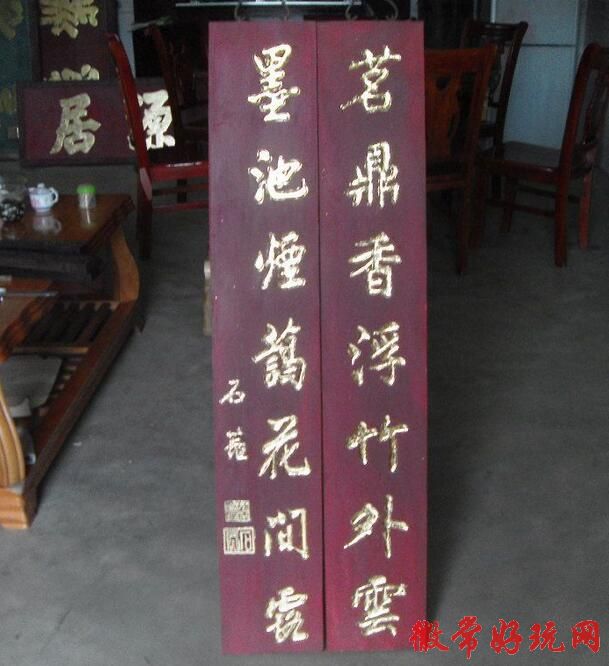 茗鼎香浮竹外雲
墨池煙藹花間露
石菴
源居
徽常好玩网